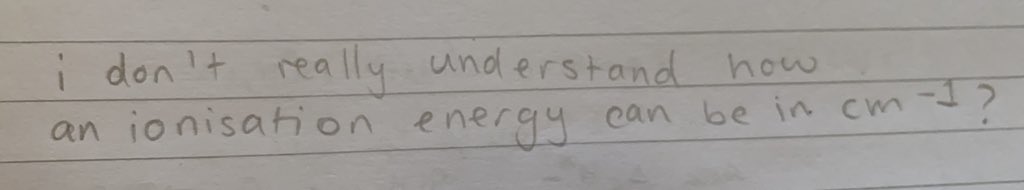 i don't really understand how
an ionisation energy can be in cm⁻¹?